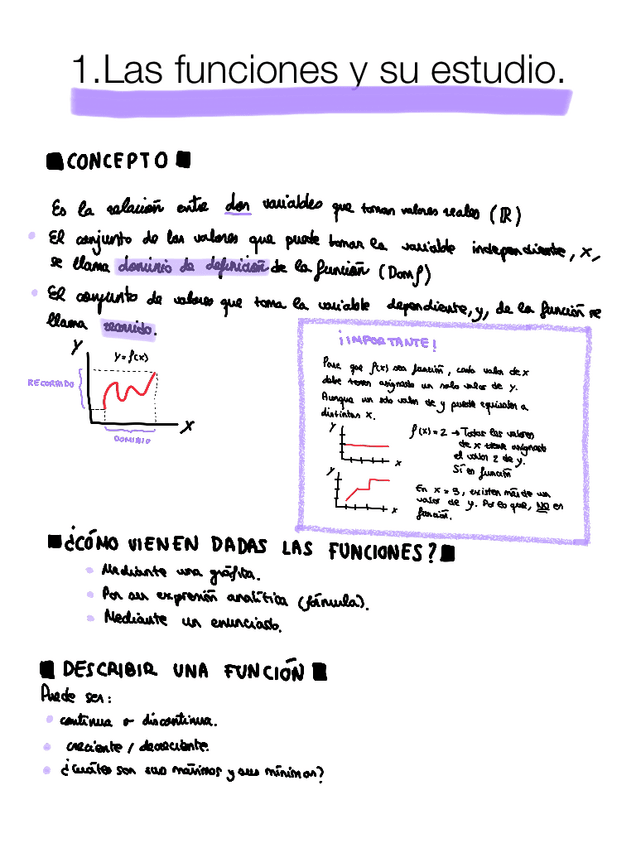 1.Las funciones y su estudio.
CONCEPTO
Es la relación entre dos variables que toman valores reales (ℝ)
El conjunto de los valores que puede tomar la variable independiente, x,
se llama dominio de definición de la función (Domf)
El conjunto de valores que toma la variable dependiente, y, de la función se
llama recorrido.
y
y=f(x)
RECORRIDO
x
DOMINIO
¡IMPORTANTE!
Para que f(x) sea función, cada valor de x
debe tener asignado un solo valor de y.
Aunque un solo valor de y puede equivaler a
distintos x.
y
x
f(x)=2 → Todos los valores
de x tiene asignado
el valor 2 de y.
Sí es función
y
x
En x = 3, existen más de un
valor de y. Por eso que, NO es
función.
¿CÓMO VIENEN DADAS LAS FUNCIONES?
Mediante una gráfica.
Por su expresión analítica (fórmula).
Mediante un enunciado.
DESCRIBIR UNA FUNCIÓN
Puede ser:
continua o discontinua.
creciente / decreciente.
¿Cuáles son sus máximos y sus mínimos?